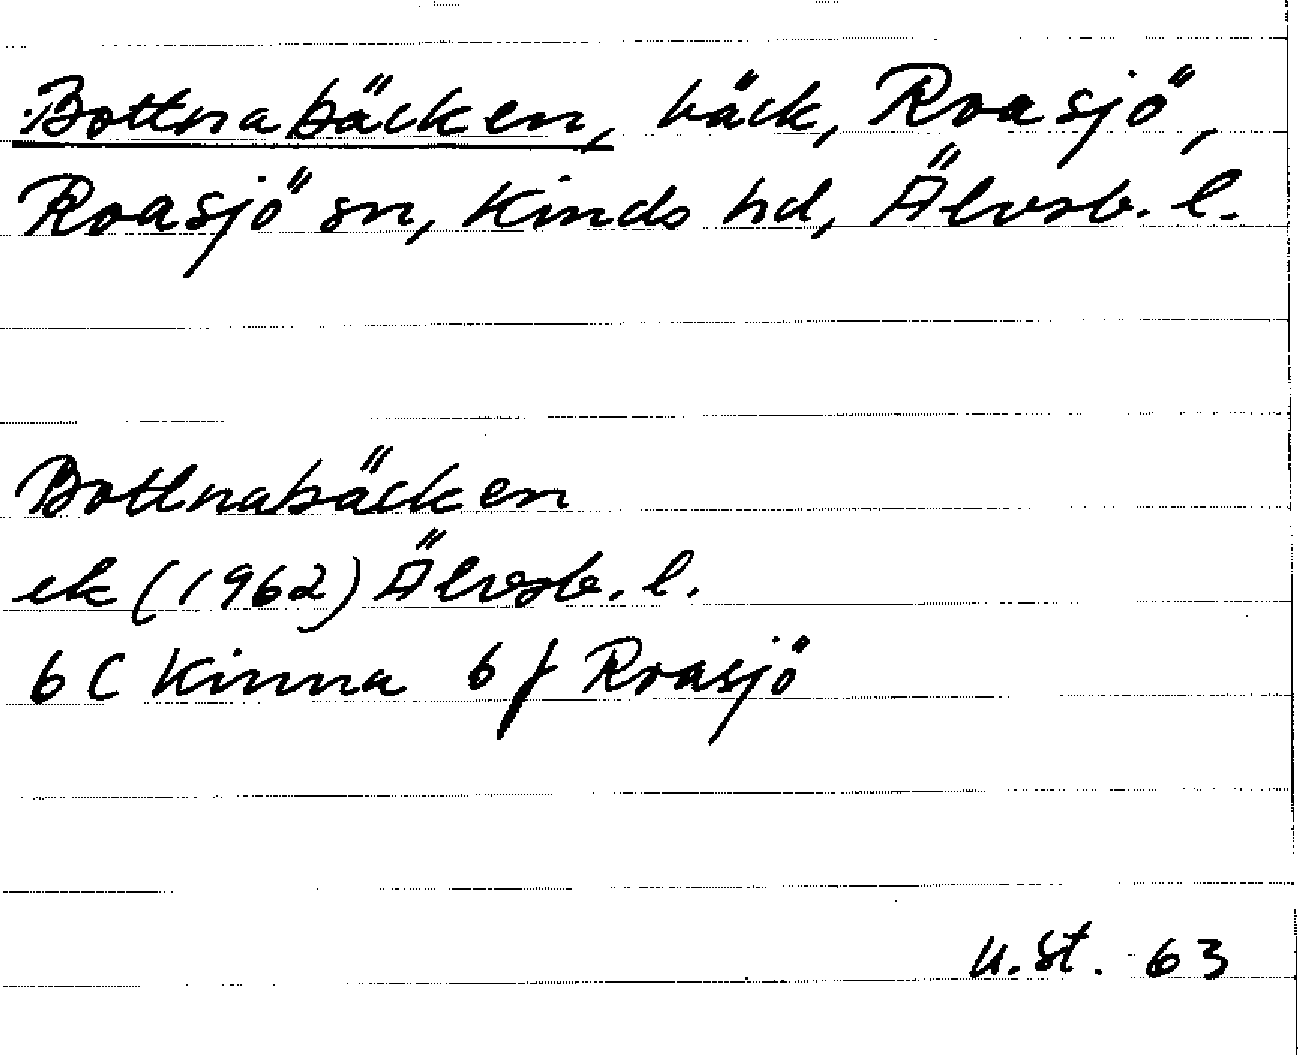 Bottnabäcken, bäck, Roasjö,
Roasjö sn, Kinds hd, Älvsb. l.
Bottnabäcken
ek (1962) Älvsb. l.
6 C Kinna 6 f Roasjö
U. St. 63